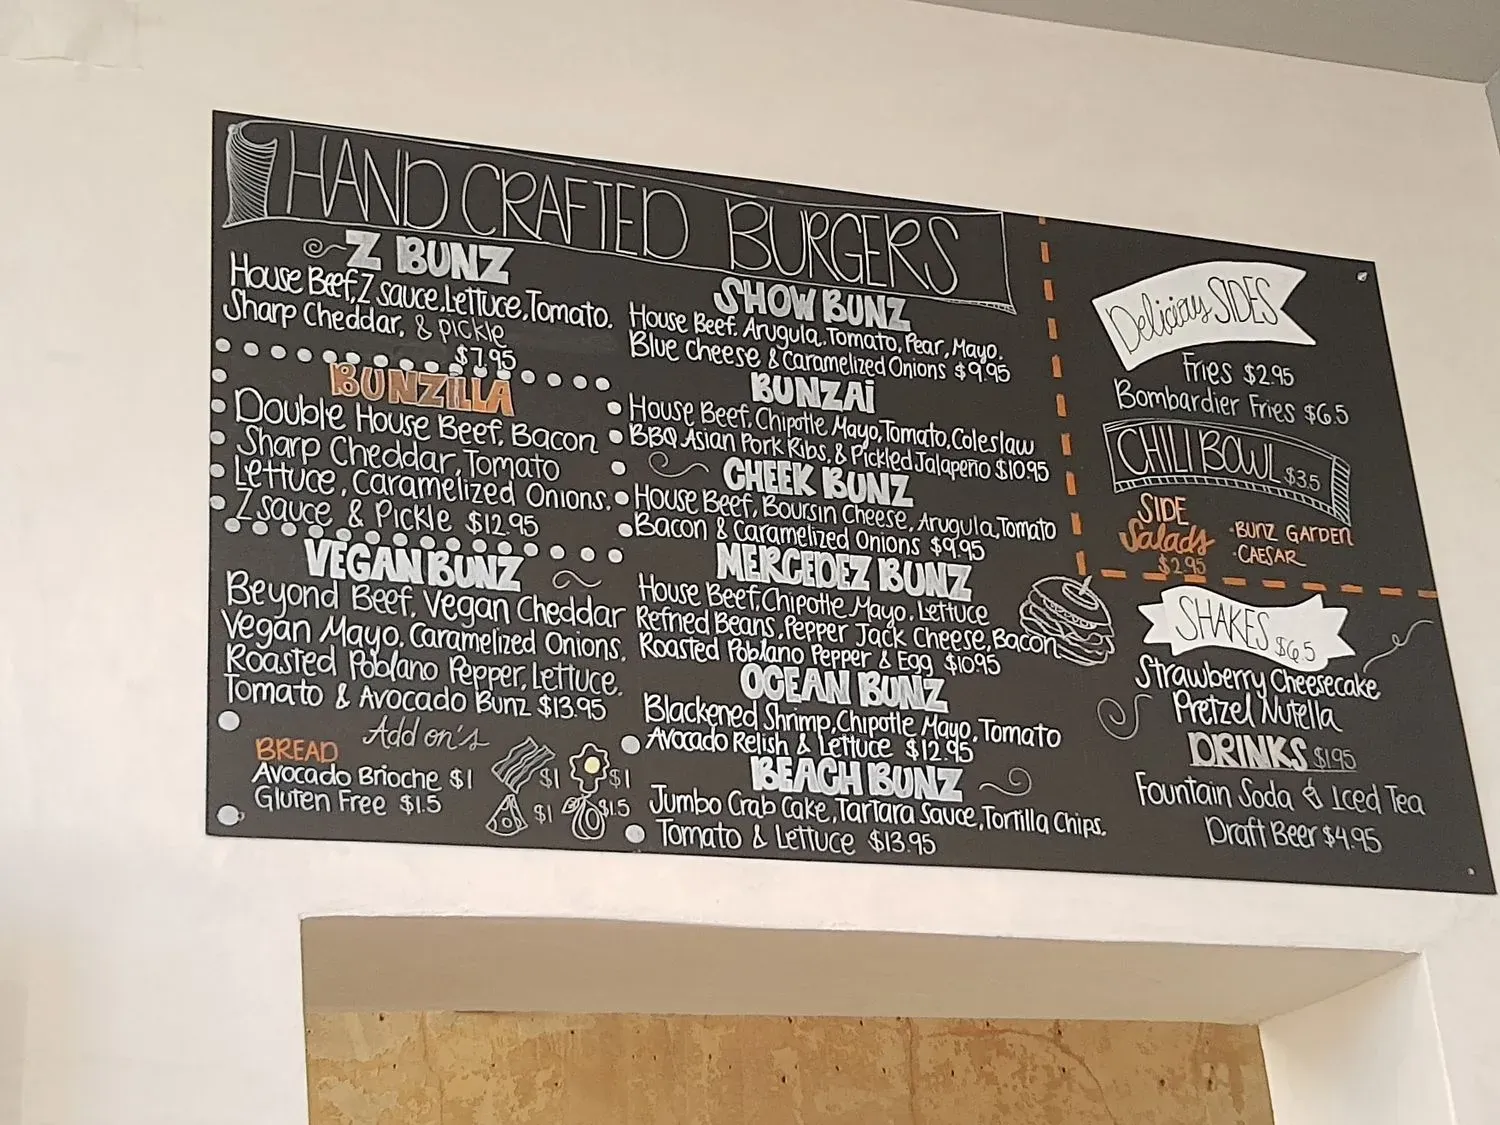 HAND CRAFTED BURGERS
Z BUNZ
House Beef, Z sauce, Lettuce, Tomato.
Sharp Cheddar, & pickle
$7.95
BUNZILLA
Double House Beef, Bacon
Sharp Cheddar, Tomato
Lettuce, Caramelized Onions.
Z sauce & Pickle $12.95
VEGAN BUNZ
Beyond Beef, Vegan Cheddar
Vegan Mayo, Caramelized Onions,
Roasted Poblano Pepper, Lettuce,
Tomato & Avocado Bunz $13.95
Add on's
BREAD
Avocado Brioche $1
Gluten Free $1.5
$1 $1
$1 $1.5
SHOW BUNZ
House Beef, Arugula, Tomato, Pear, Mayo.
Blue cheese & Caramelized Onions $9.95
BUNZAi
House Beef, Chipotle Mayo, Tomato, Coleslaw
BBQ Asian Pork Ribs, & Pickled Jalapeño $10.95
CHEEK BUNZ
House Beef, Boursin Cheese, Arugula, Tomato
Bacon & Caramelized Onions $9.95
MERCEDEZ BUNZ
House Beef, Chipotle Mayo, Lettuce
Refried Beans, Pepper Jack Cheese, Bacon
Roasted Poblano Pepper & Egg $10.95
OCEAN BUNZ
Blackened Shrimp, Chipotle Mayo, Tomato
Avocado Relish & Lettuce $12.95
BEACH BUNZ
Jumbo Crab Cake, Tartara Sauce, Tortilla Chips,
Tomato & Lettuce $13.95
Delicious SIDES
Fries $2.95
Bombardier Fries $6.5
CHILI BOWL $3.5
SIDE
Salads
$2.95
·BUNZ GARDEN
·CAESAR
SHAKES $6.5
Strawberry Cheesecake
Pretzel Nutella
DRINKS $1.95
Fountain Soda & Iced Tea
Draft Beer $4.95